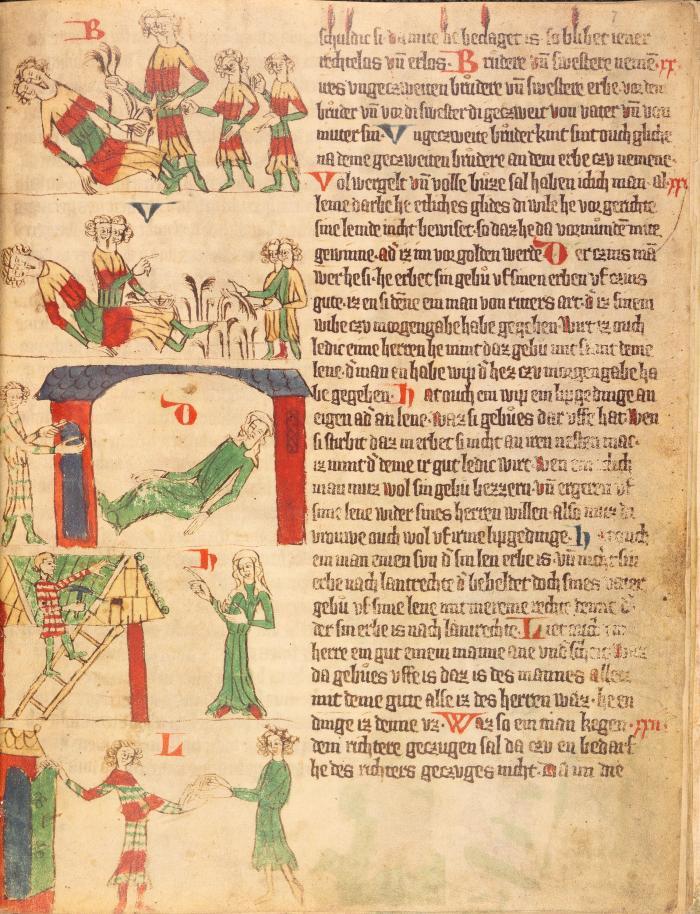 7
B
V
D
h
L
schuldic si da mite he bedaget is · so blibet iener
rechtelos vn̄ erlos · Brudere vn̄ swestere nemen · xx ·
ires vngeczweiten brudere vn̄ swestere erbe vor den
bruder vn̄ vor di swester di geczweit von vater vn̄ von
muter sin · Vngeczweite bruder kint sint ouch gliche
na deme geczweiten brudere an dem erbe czu nemene ·
Vol wergelt vn̄ volle buze sal haben iclich man · al · xxi
leine darbe he etliches glides di wile he vor gerichte
sine lemde nicht bewiset · so daz he da vormundē mite
gewinne · ad' iz im vorgolden werde Der czins mā
wer he si · he erbet sin gebu vf sinen erben vf czins
gute · iz en si dēne ein man von ritters art · d' iz sinem
wibe czu morgengabe habe gegeben · Wirt iz ouch
ledic eime herren he nimt daz gebu mit samt deme
lene · d' man en habe wip d' hez czu morgengabe ha
be gegeben · hat ouch ein wip ein lipgedinge an
eigen ad' an lene · waz si gebues dar vffe hat wen
si stirbit daz in erbet si nicht an iren nesten mac ·
iz nimt d' deme ir gut ledic wirt · wen ein iclich
man muz wol sin gebu bezzern · vn̄ ergeren vf
sime lene wider sines herren willen · also muz di
vrouwe ouch wol vf irme lipgedinge · hat ouch
ein man einen svn d' sin len erbe is · vn̄ nicht sin
erbe nach lantrechte d' beheldet doch sines vater
gebu vf sime lene mit mereme rechte denne d'
der sin erbe is nach lantrechte · Liet ouch ein
herre ein gut einem manne ane vndscheit waz
da gebues vffe is daz is des mannes allez
mit deme gute alse iz des herren waz · he en
dinge iz denne vz · Waz so ein man kegen · xxii ·
dem richtere geczugen sal da czu en bedarf
he des richters geczuges nicht · Man die